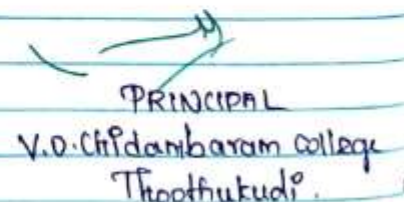 PRINCIPAL
V.O.Chidambaram college
Thoothukudi.